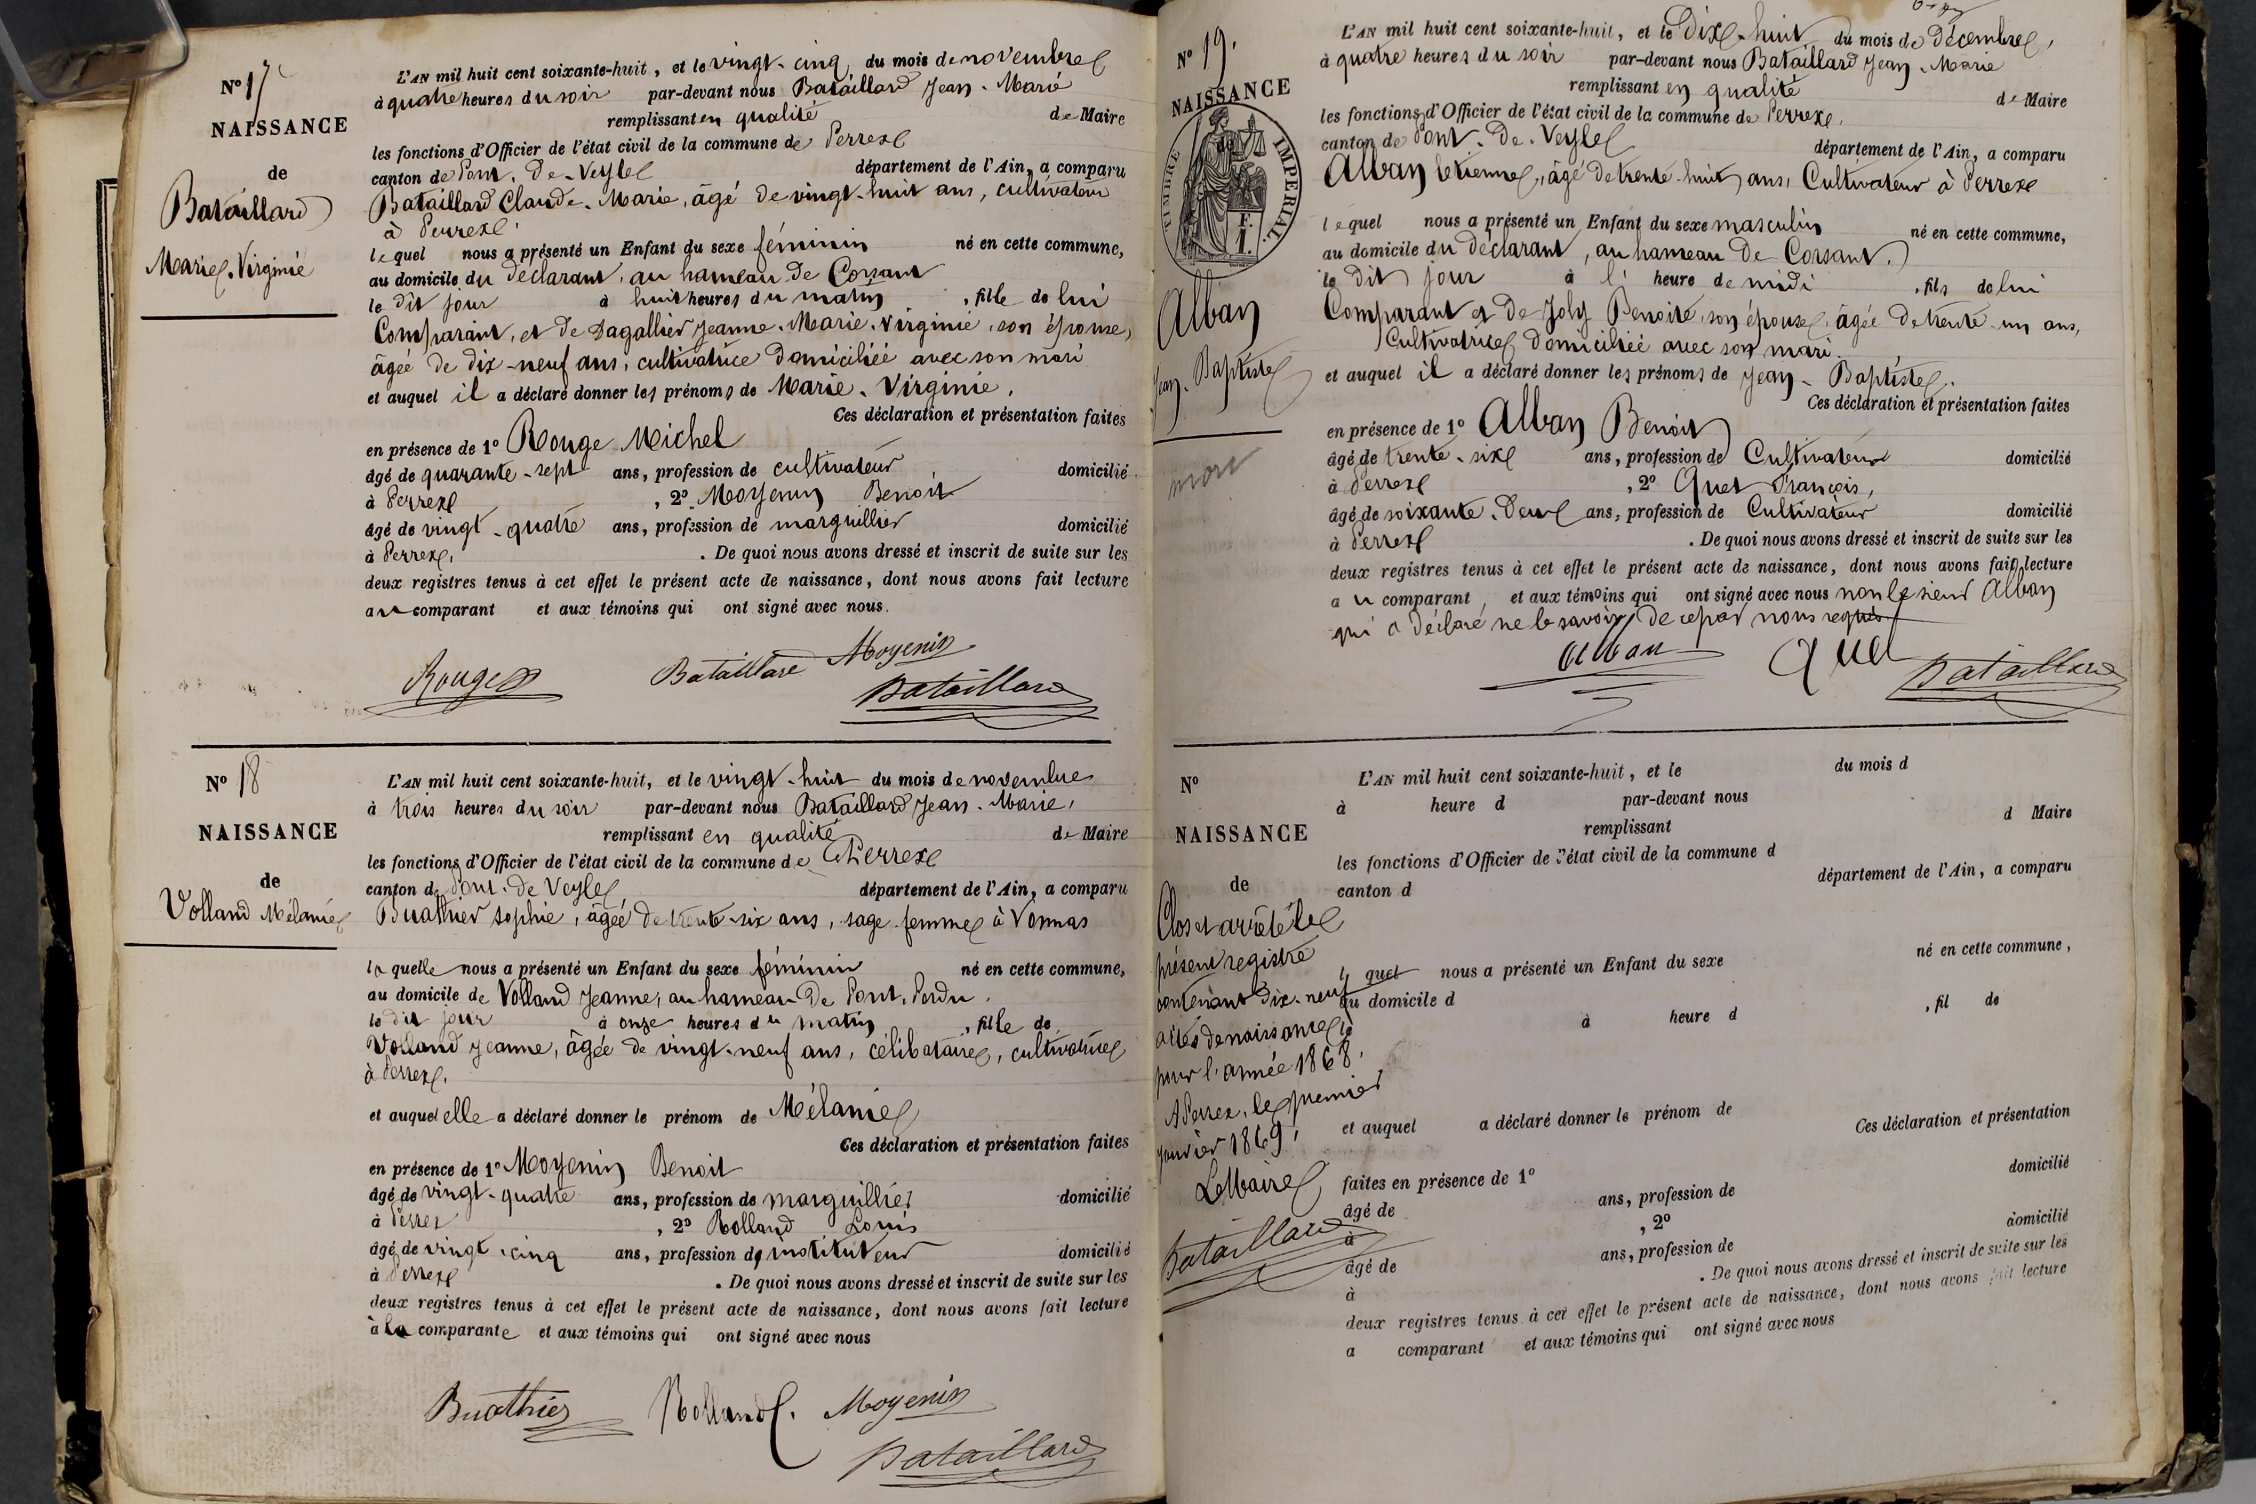 N° 17
NAISSANCE
de
Bataillard
Marie-Virginie
L'AN mil huit cent soixante-huit, et le vingt-cinq du mois de novembre
à quatre heures du soir par-devant nous Bataillard Jean-Marie
remplissant en qualité de Maire
les fonctions d'Officier de l'état civil de la commune de Perrex
canton de Pont-de-Veyle département de l'Ain, a comparu
Bataillard Claude-Marie, âgé de vingt-huit ans, cultivateur
à Perrex.
lequel nous a présenté un Enfant du sexe féminin né en cette commune,
au domicile du déclarant, au hameau de Corsant
le dit jour à huit heures du matin, fille de lui
Comparant, et de Dagallier Jeanne-Marie-Virginie, son épouse,
âgée de dix-neuf ans, cultivatrice domiciliée avec son mari
et auquel il a déclaré donner les prénoms de Marie-Virginie.
Ces déclaration et présentation faites
en présence de 1° Rouge Michel
âgé de quarante-sept ans, profession de cultivateur domicilié
à Perrex, 2° Moyenin Benoit
âgé de vingt-quatre ans, profession de marguillier domicilié
à Perrex. De quoi nous avons dressé et inscrit de suite sur les
deux registres tenus à cet effet le présent acte de naissance, dont nous avons fait lecture
au comparant et aux témoins qui ont signé avec nous.
Rouge Bataillard Moyenin
Bataillard
N° 18
NAISSANCE
de
Volland Mélanie
L'AN mil huit cent soixante-huit, et le vingt-huit du mois de novembre
à trois heures du soir par-devant nous Bataillard Jean-Marie,
remplissant en qualité de Maire
les fonctions d'Officier de l'état civil de la commune de Perrex
canton de Pont-de-Veyle département de l'Ain, a comparu
Buathier Sophie, âgée de trente-six ans, sage-femme à Vonnas
laquelle nous a présenté un Enfant du sexe féminin né en cette commune,
au domicile de Volland Jeanne, au hameau de Pont-Perdu.
le dit jour à onze heures du matin, fille de
Volland Jeanne, âgée de vingt-neuf ans, célibataire, cultivatrice
à Perrex.
et auquel elle a déclaré donner le prénom de Mélanie
Ces déclaration et présentation faites
en présence de 1° Moyenin Benoit
âgé de vingt-quatre ans, profession de marguillier domicilié
à Perrex, 2° Rolland Louis
âgé de vingt-cinq ans, profession d'instituteur domicilié
à Perrex. De quoi nous avons dressé et inscrit de suite sur les
deux registres tenus à cet effet le présent acte de naissance, dont nous avons fait lecture
à la comparante et aux témoins qui ont signé avec nous
Buathier Rolland. Moyenin
Bataillard
N° 19.
NAISSANCE
de
TIMBRE IMPERIAL.
Alban
Jean-Baptiste
mort
L'AN mil huit cent soixante-huit, et le Dix-huit du mois de Décembre,
à quatre heures du soir par-devant nous Bataillard Jean-Marie
remplissant en qualité de Maire
les fonctions d'Officier de l'état civil de la commune de Perrex.
canton de Pont-de-Veyle département de l'Ain, a comparu
Alban Etienne, âgé de trente-huit ans, Cultivateur à Perrex
lequel nous a présenté un Enfant du sexe masculin né en cette commune,
au domicile du déclarant, au hameau de Corsant.
le dit jour à l' heure de midi, fils de lui
Comparant et de Joly Benoite, son épouse, âgée de trente-un ans,
Cultivatrice domiciliée avec son mari.
et auquel il a déclaré donner les prénoms de Jean-Baptiste.
Ces déclaration et présentation faites
en présence de 1° Alban Benoit
âgé de trente-six ans, profession de Cultivateur domicilié
à Perrex, 2° Quet François,
âgé de soixante-Deux ans, profession de Cultivateur domicilié
à Perrex. De quoi nous avons dressé et inscrit de suite sur les
deux registres tenus à cet effet le présent acte de naissance, dont nous avons fait lecture
au comparant, et aux témoins qui ont signé avec nous non le sieur Alban
qui a déclaré ne le savoir de ce par nous requis
Alban Quet Bataillard
N°
NAISSANCE
de
Clos et arrêté le
présent registre
contenant dix-neuf
actes de naissance
pour l'année 1868.
A Perrex, le premier
janvier 1869.
Le Maire
Bataillard
L'AN mil huit cent soixante-huit, et le du mois d
à heure d par-devant nous
remplissant d Maire
les fonctions d'Officier de l'état civil de la commune d
canton d département de l'Ain, a comparu
l quel nous a présenté un Enfant du sexe né en cette commune,
au domicile d
le à heure d , fil de
et auquel a déclaré donner le prénom de
Ces déclaration et présentation
faites en présence de 1°
âgé de ans, profession de domicilié
à , 2°
âgé de ans, profession de domicilié
à . De quoi nous avons dressé et inscrit de suite sur les
deux registres tenus à cet effet le présent acte de naissance, dont nous avons fait lecture
a comparant et aux témoins qui ont signé avec nous